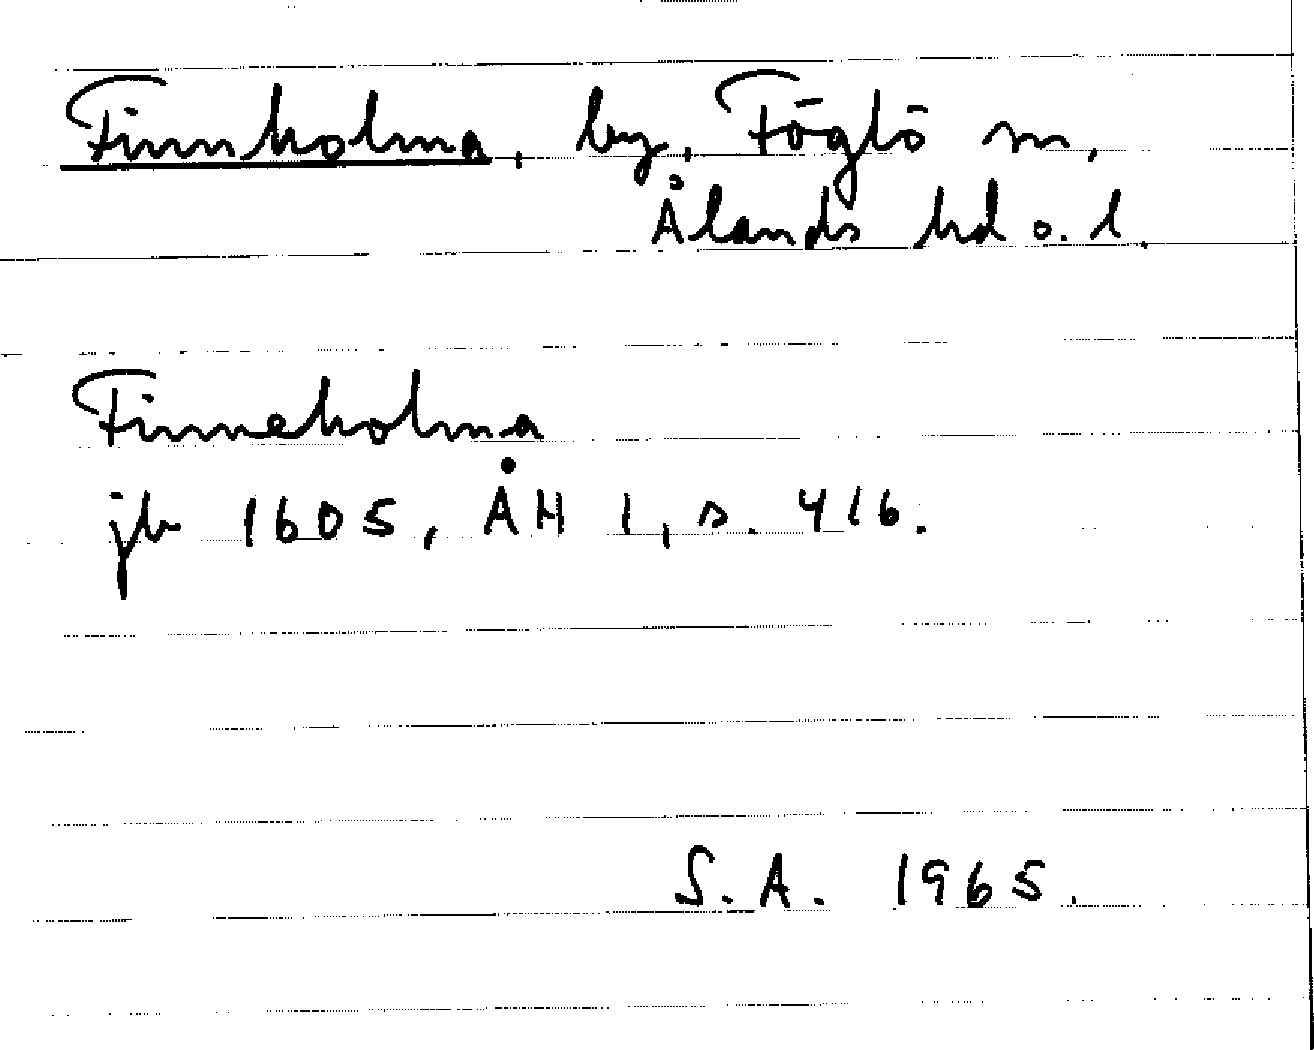 Finnholma, by, Föglö sn,
Ålands hd o. l.
Finneholma
jb 1605, ÅH 1, s. 416.
S.A. 1965.